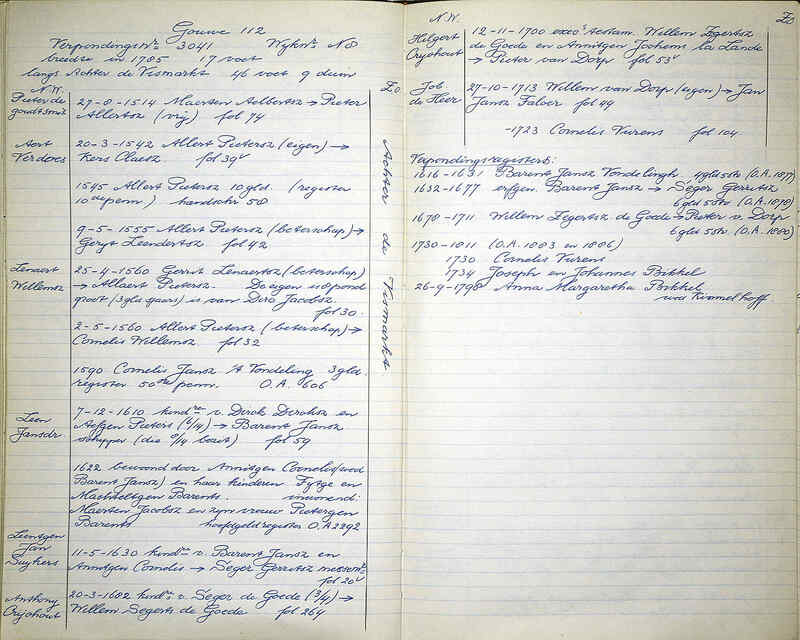 Gouwe 112
Verpondingsnr. 3041 Wijknr. N 8
breedte in 1785 17 voet
langs Achter de Vismarkt 46 voet 9 duim
N.W.
Zo.
Pieter de
goudtsmit
27-8-1514 Maerten Aelbertsz → Pieter
Allertsz (vrij) fol 74
Aert
Verdoes
20-3-1542 Allert Pietersz (eigen) →
Kers Claesz fol 39v
1545 Allert Pietersz 10 gld. (register
10de penn) handschr 58
9-5-1555 Allert Pietersz (beterschap) →
Geryt Leendertsz fol 42
Lenaert
Willemsz
25-4-1560 Gerrit Lenaertsz (beterschap)
→ Allaert Pietersz. De eigen is 2 pond
groot (3 gls sjaars) is van Dirc Jacobsz.
fol 30.
2-5-1560 Allert Pietersz (beterschap) →
Cornelis Willemsz fol 32
1590 Cornelis Jansz 't Vondeling 3 gld.
register 50ste penn. O.A. 606
Leen
Jansdr
7-12-1610 kindren v. Dirck Dircksz en
Aefgen Pieters (6/14) → Barent Jansz
schipper (die 8/14 bezit) fol 59
1622 bewoond door Annitgen Cornelis (wed
Barent Jansz) en haar kinderen Fytge en
Machteltgen Barents. inwonend:
Maerten Jacobsz en zyn vrouw Pietergen
Barents hooftgeldregister O.A 2292
Leentgen
Jan
Suykers
11-5-1630 kindren v. Barent Jansz en
Annitgen Cornelis → Seger Gerritsz messemr
fol 20v
Anthony
Crijshout
20-3-1682 kindrs v. Seger de Goede (3/4) →
Willem Segerts de Goede fol 264
Achter de Vismarkt
N.W.
Zo
Hilgert
Crijshout
12-11-1700 execs testam. Willem Zegertsz
de Goede en Annitgen Jochems la Lande
→ Pieter van Dorp fol 53v
Job
de Heer
27-10-1713 Willem van Dorp (eigen) → Jan
Jansz Falver fol 99
-1723 Cornelis Vurens fol 104
Verpondingsregisters:
1616-1631 Barent Jansz Vondelingh 4 gls 5 str (O.A. 1877)
1632-1677 erfgen. Barent Jansz → Seger Gerritsz
6 gls 5 str (O.A. 1878)
1678-1711 Willem Zegertsz de Goede → Pieter v. Dorp
6 gls 5 str. (O.A. 1880)
1730-1811 (O.A. 1883 en 1886)
1730 Cornelis Vurens
1734 Joseph en Johannes Bikkel
26-9-1798 Anna Margaretha Bikkel
wed Kimmelhoff.